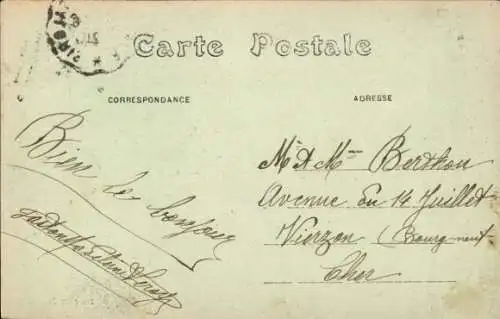 Carte Postale
CORRESPONDANCE
ADRESSE
Bien le bonjour
Mr & Mme Berthon
Avenue Du 14 Juillet
Vierzon (Bourgneuf
Cher